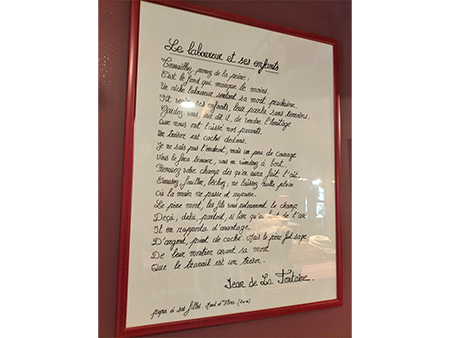 Le laboureur et ses enfants
Travaillez, prenez de la peine,
C'est le fond qui manque le moins.
Un riche laboureur sentant sa mort prochaine,
Fit venir ses enfants, leur parla sans témoins.
Gardez-vous, leur dit-il, de vendre l'héritage
Que nous ont laissé nos parents.
Un trésor est caché dedans.
Je ne sais pas l'endroit, mais un peu de courage
Vous le fera trouver, vous en viendrez à bout.
Remuez votre champ dès qu'on aura fait l'août.
Creusez, fouillez, bêchez, ne laissez nulle place
Où la main ne passe et repasse.
Le père mort, les fils vous retournent le champ
Deçà, delà, partout, si bien qu'au bout de l'an
Il en rapporta d'avantage.
D'argent, point de caché. Mais le père fut sage
De leur montrer avant sa mort
Que le travail est un trésor.
Jean de La Fontaine.
papa à ses filles